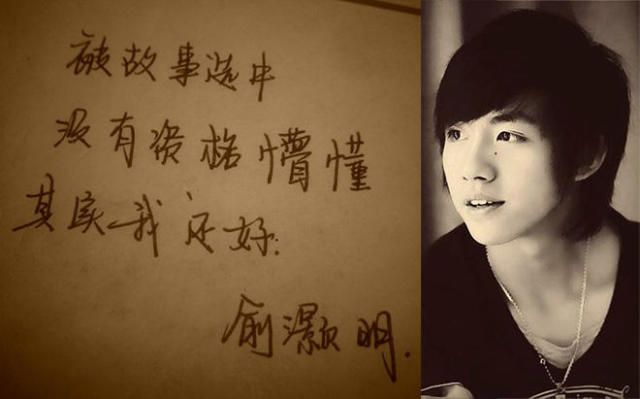 被故事选中
没有资格懵懂
其实我还好:
俞灏明.